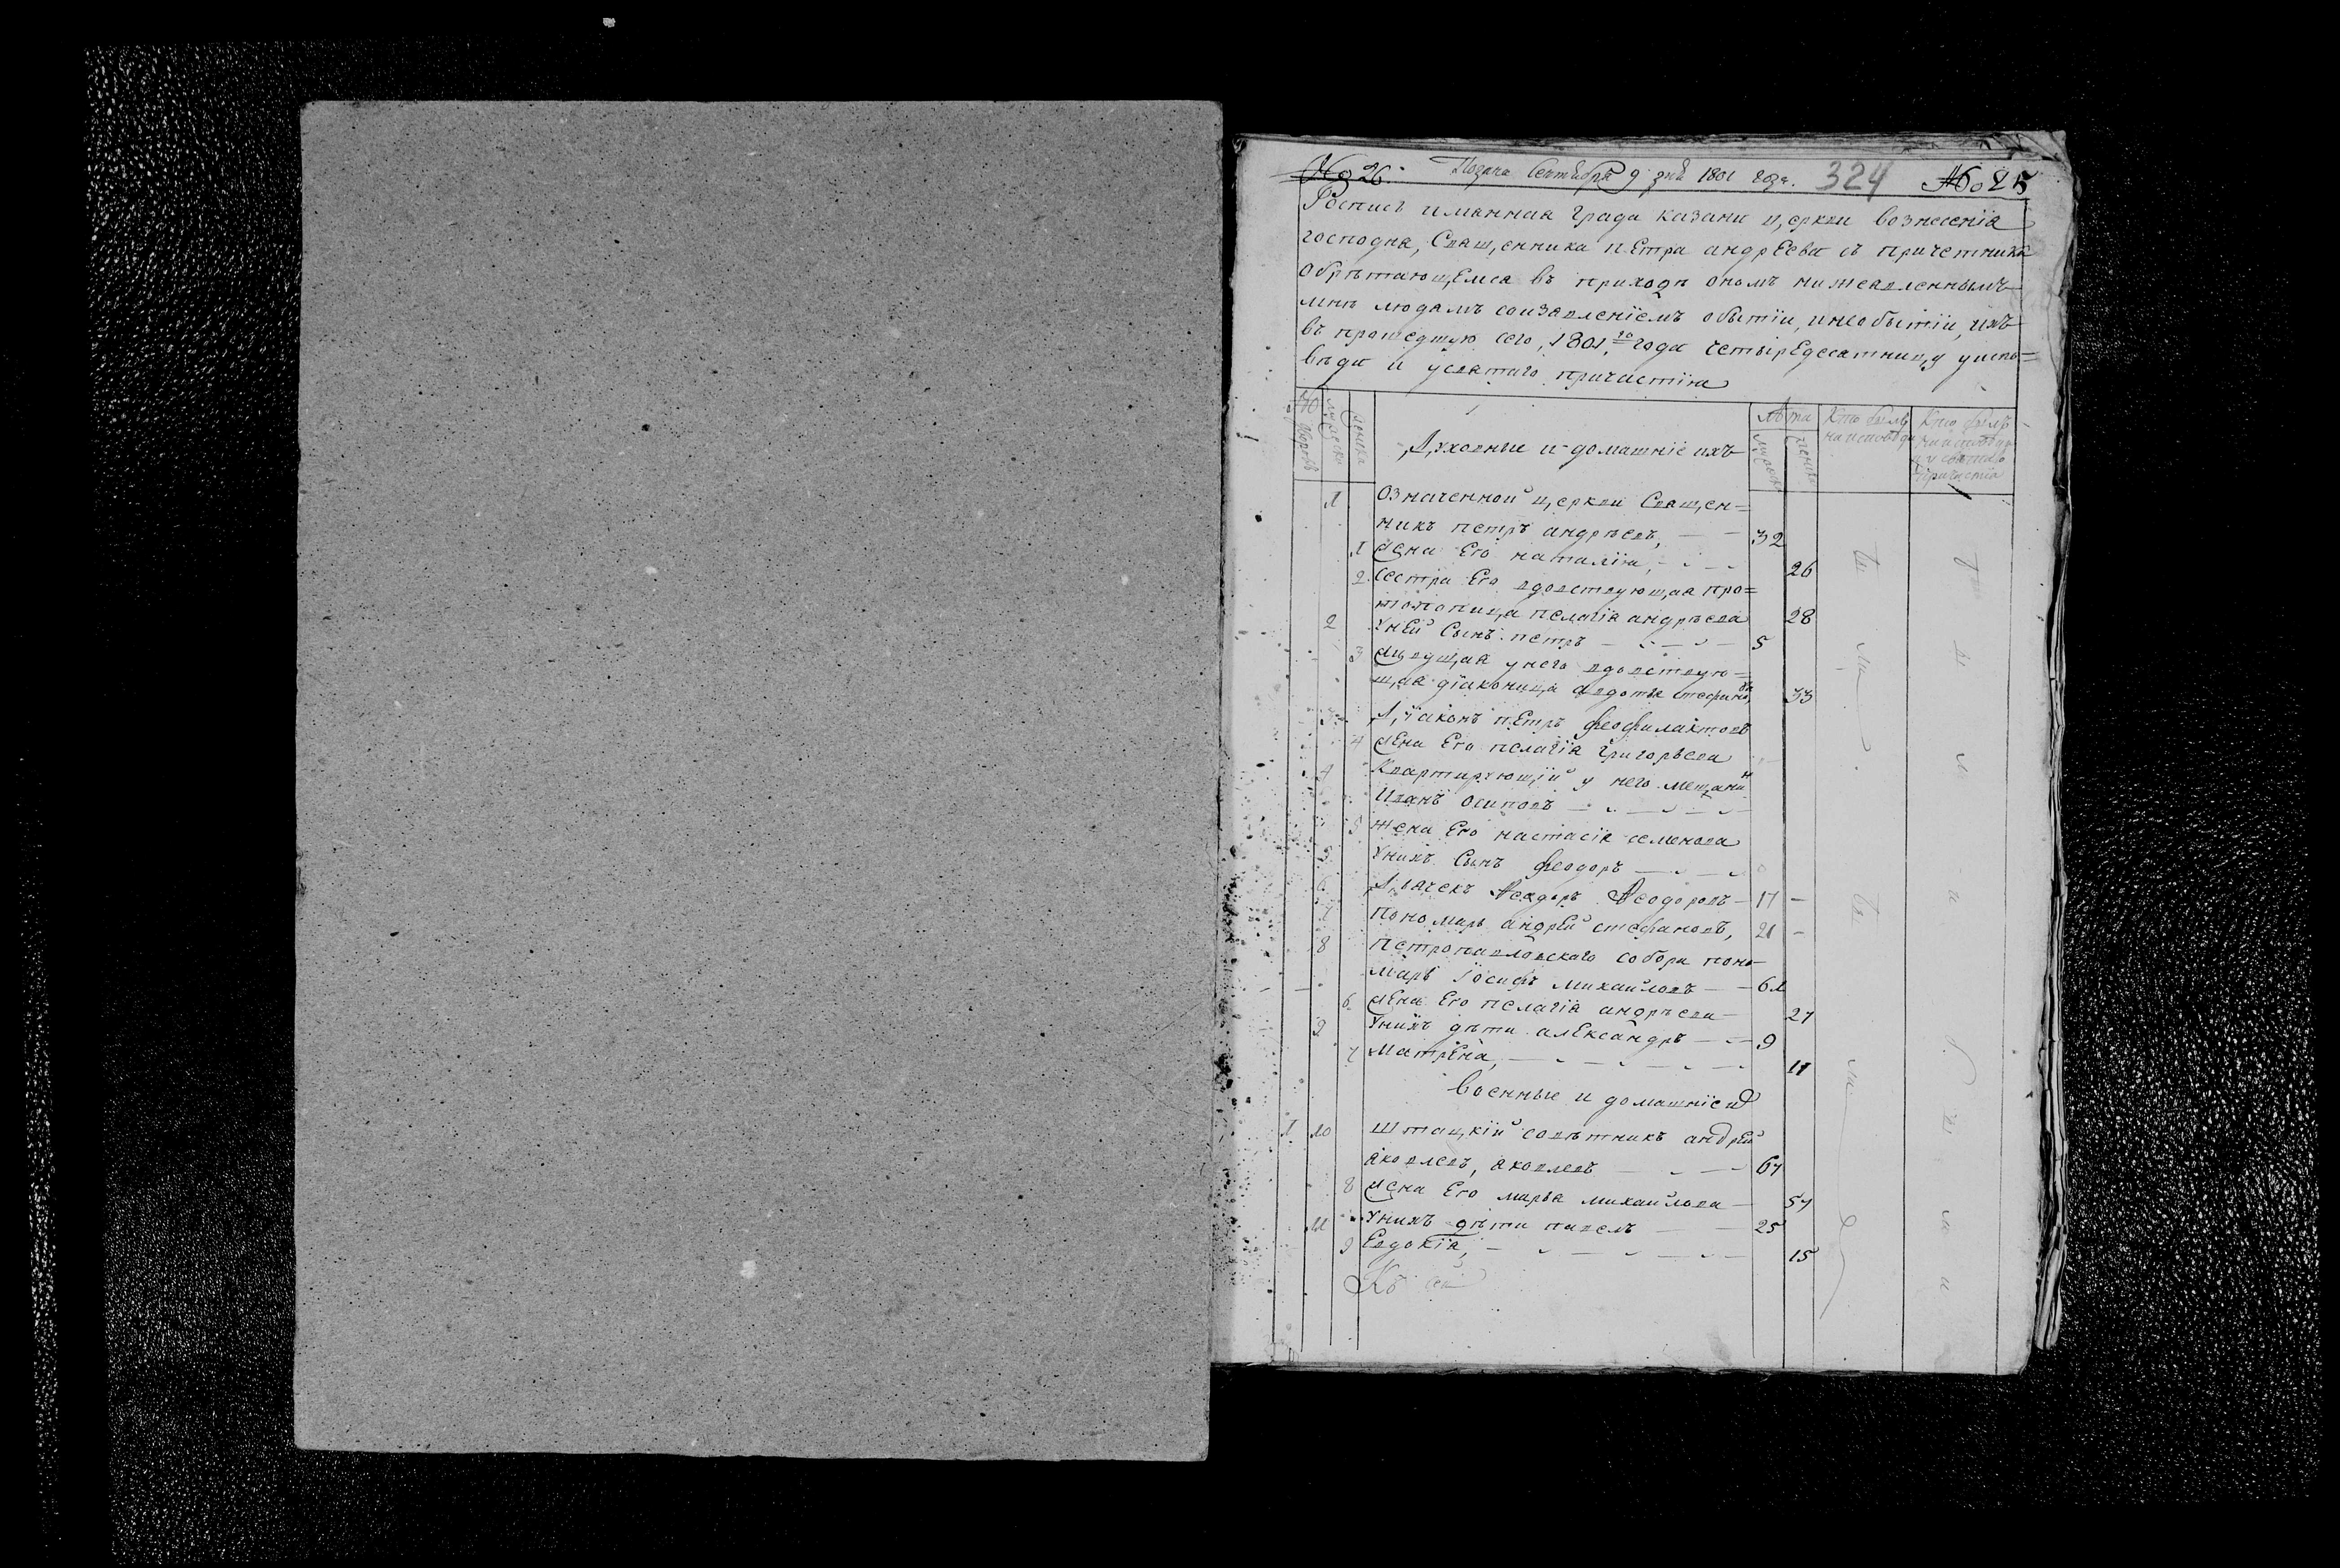 № 26. Подана Сентября 9 дня 1801 года. 324 № 25
Роспись имянная града казани церкви вознесенїя
господня, Священника пЕтра андрЕева съ причетники
Обрѣтающимся въ приходѣ ономъ нижеявленнымъ
людямъ соизъявленїемъ обытїи, инеобытїи, ихъ
въ прошедшую сего, 1801,го года четырЕдесятницу уиспо=
вѣди и усвятаго причастїя
Лѣта
Кто былъ наисповѣди
Кто былъ наисповѣди и усвятаго причастїя
Духовные и домашнїе ихъ
1 Означенной церкви Священ=
никъ петръ андрѣевъ, 32
1 жена Его наталїя, 26
2 Сестра Его вдовствующая про=
топопица пелагїя андрѣева 28
2 Уней Сынъ петръ 5
3 живущая унего вдовствую=
щая дїаконица авдотья стефано 33
3 Дїаконъ пЕтръ феофилактовъ
4 жЕна Его пелагїя григорьева
4 Квартирующїй у него мещанинъ
Иванъ осиповъ
5 жена Его настасїя семенова
5 Унихъ Сынъ феодоръ
6 Дьячекъ Феодоровъ 17
7 Пономарь андрей стефановъ, 21
8 Петропавловскаго собора поно=
марь Іосифъ михайловъ 61
6 жЕна Его пелагїя андрѣева 27
9 Унихъ дѣти алЕксандръ 9
7 МатрЕна, 11
Военные и домашнїе их
1 10 Штацкїй совѣтникъ андрей
яковлевъ, яковлевъ 67
8 жена Его марья михайлова 57
11 Унихъ дѣти павелъ 25
9 Евдокїя, 15
Къ сей